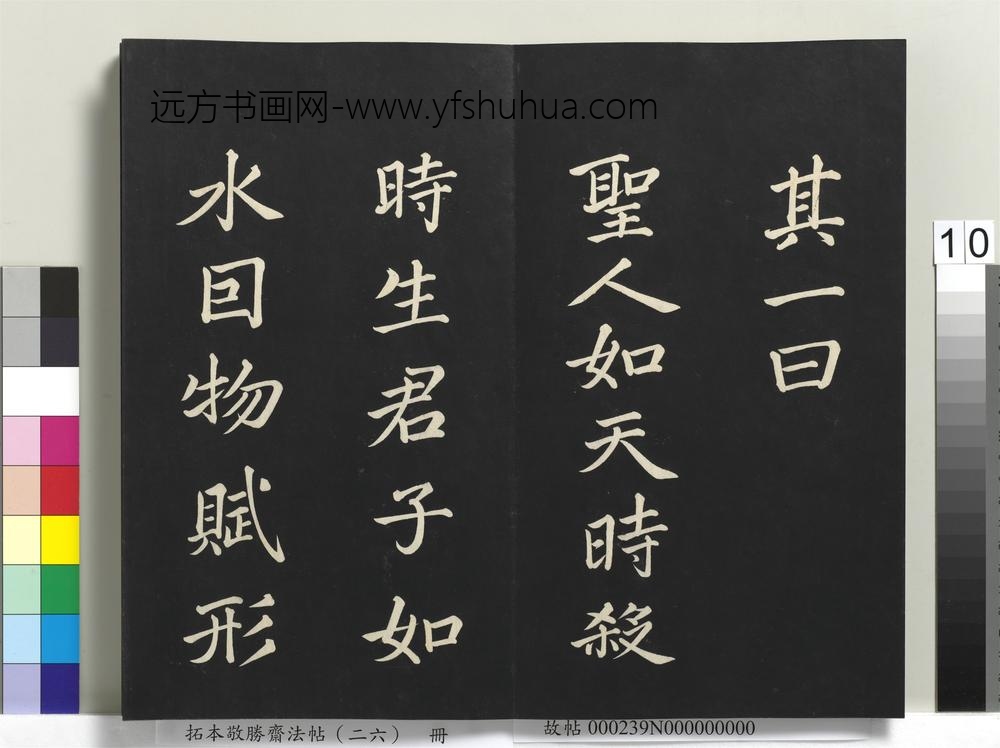 远方书画网-www.yfshuhua.com
其一曰
聖人如天時殺
時生君子如
水囙物賦形
10
拓本敬勝齋法帖（二六） 冊
故帖 000239N000000000